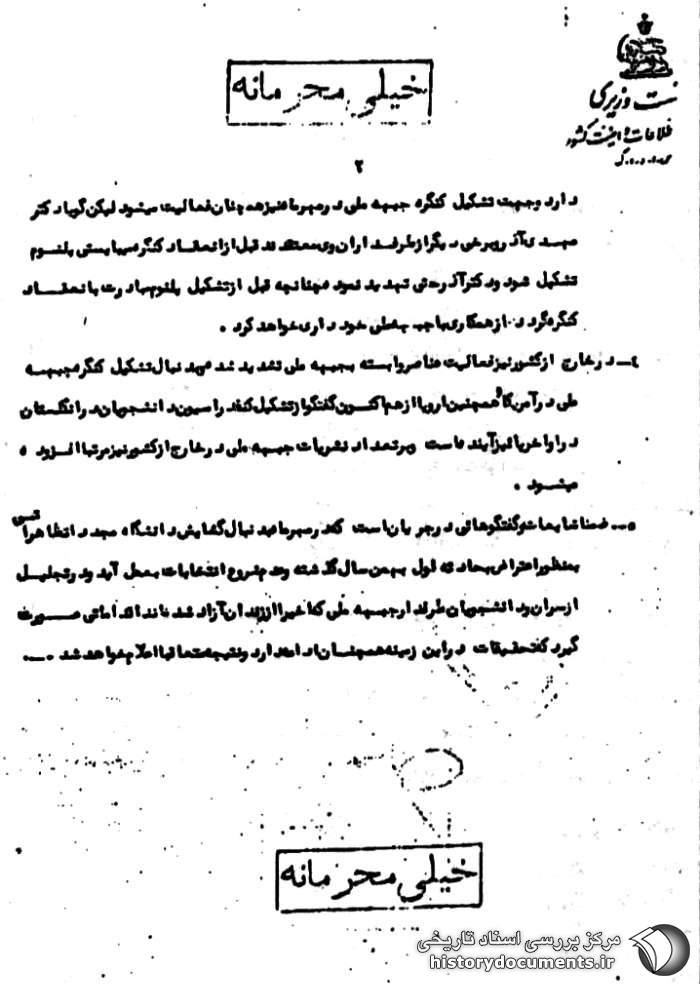 خیلی محرمانه
نخست وزیری
اطلاعات و امنیت کشور
۲
دارد وجهت تشکیل کنگره جبهه ملی در مهرماه نیز همچنان فعالیت میشود لیکن گویا دکتر
مهدی آذر و برخی دیگر از طرفداران وی معتقدند قبل از انعقاد کنگره میبایستی پلنوم
تشکیل شود و دکتر آذر حتی تهدید نموده چنانچه قبل از تشکیل پلنوم مبادرت بانعقاد
کنگره گردد از همکاری با جبهه ملی خودداری خواهد کرد .
٤ـ در خارج از کشور نیز فعالیت عناصر وابسته بجبهه ملی تشدید شده و بدنبال تشکیل کنگره جبهه
ملی در آمریکا و همچنین اروپا از هم اکنون گفتگو از تشکیل کنفدراسیون دانشجویان در انگلستان
در اواخر پائیز آینده است و بر تعداد نشریات جبهه ملی در خارج از کشور نیز مرتبا افزوده
میشود .
٥ـ ضمنا شایعات و گفتگوهائی در جریان است که در مهرماه بدنبال گشایش دانشگاه مجددا تظاهراتی
بمنظور اعتراض بحادثه اول بهمن سال گذشته و عدم شروع انتخابات بعمل آید و در تجلیل
از سران و دانشجویان طرفدار جبهه ملی که اخیرا از زندان آزاد شده‌اند اقداماتی صورت
گیرد که تحقیقات در این زمینه همچنان ادامه دارد و نتیجه متعاقبا اعلام خواهد شد .ـ.
خیلی محرمانه
مرکز بررسی اسناد تاریخی
historydocuments.ir